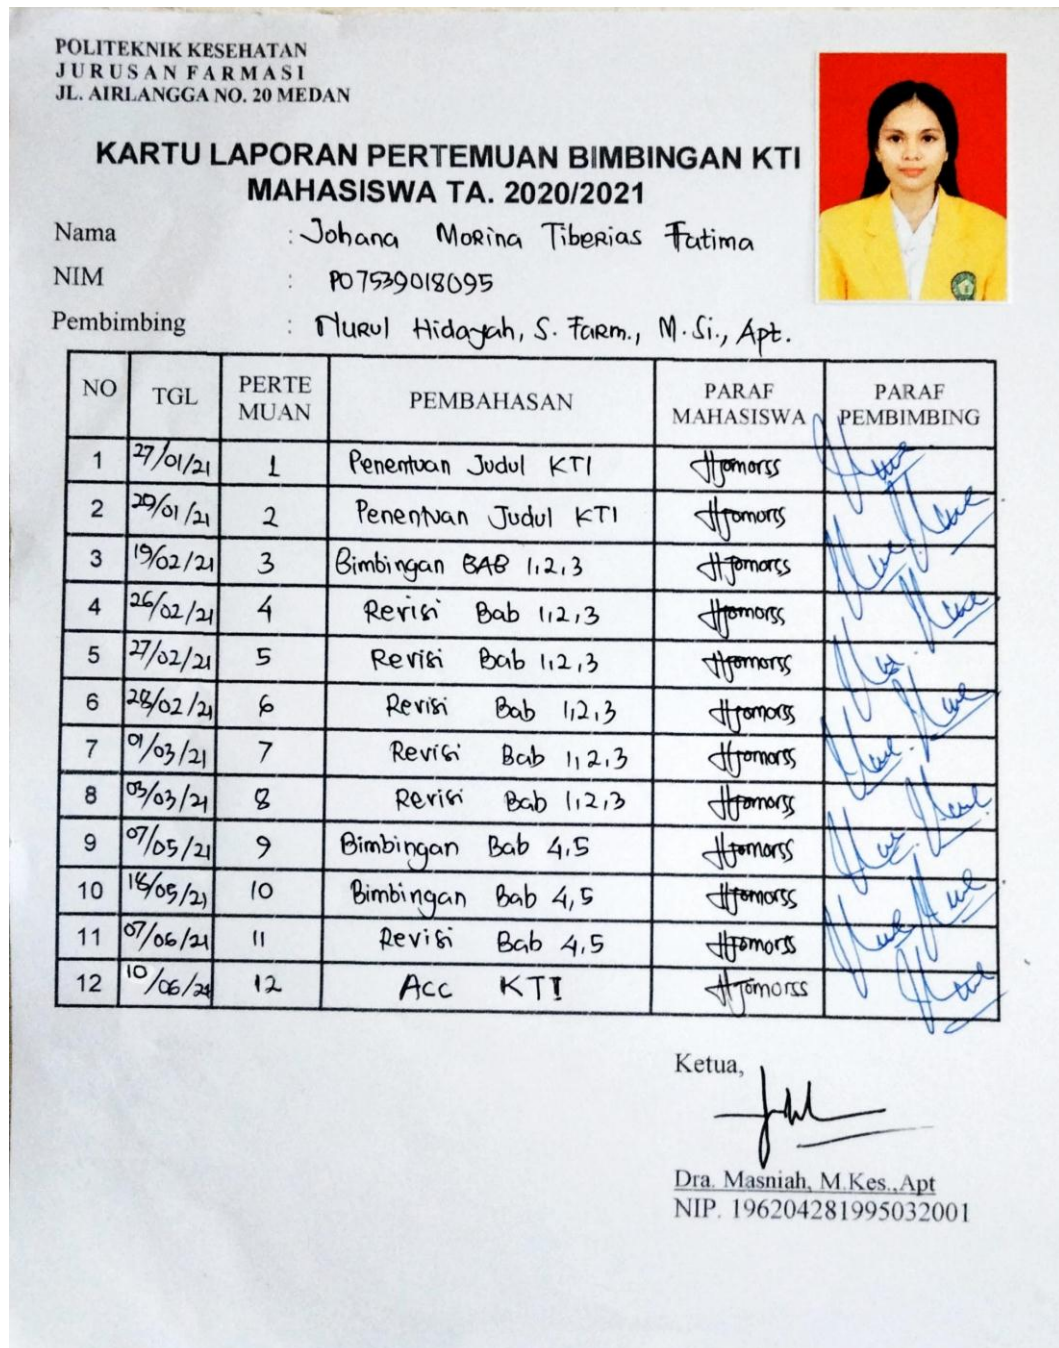 POLITEKNIK KESEHATAN
JURUSAN FARMASI
JL. AIRLANGGA NO. 20 MEDAN
KARTU LAPORAN PERTEMUAN BIMBINGAN KTI
MAHASISWA TA. 2020/2021
Nama : Johana Morina Tiberias Fatima
NIM : P07539018095
Pembimbing : Nurul Hidayah, S. Farm., M.Si., Apt.
NO TGL PERTE MUAN PEMBAHASAN PARAF MAHASISWA PARAF PEMBIMBING
1 27/01/21 1 Penentuan Judul KTI
2 29/01/21 2 Penentuan Judul KTI
3 19/02/21 3 Bimbingan BAB 1,2,3
4 26/02/21 4 Revisi Bab 1,2,3
5 27/02/21 5 Revisi Bab 1,2,3
6 28/02/21 6 Revisi Bab 1,2,3
7 01/03/21 7 Revisi Bab 1,2,3
8 03/03/21 8 Revisi Bab 1,2,3
9 07/05/21 9 Bimbingan Bab 4,5
10 18/05/21 10 Bimbingan Bab 4,5
11 07/06/21 11 Revisi Bab 4,5
12 10/06/21 12 Acc KTI
Ketua,
Dra. Masniah, M.Kes.,Apt
NIP. 196204281995032001